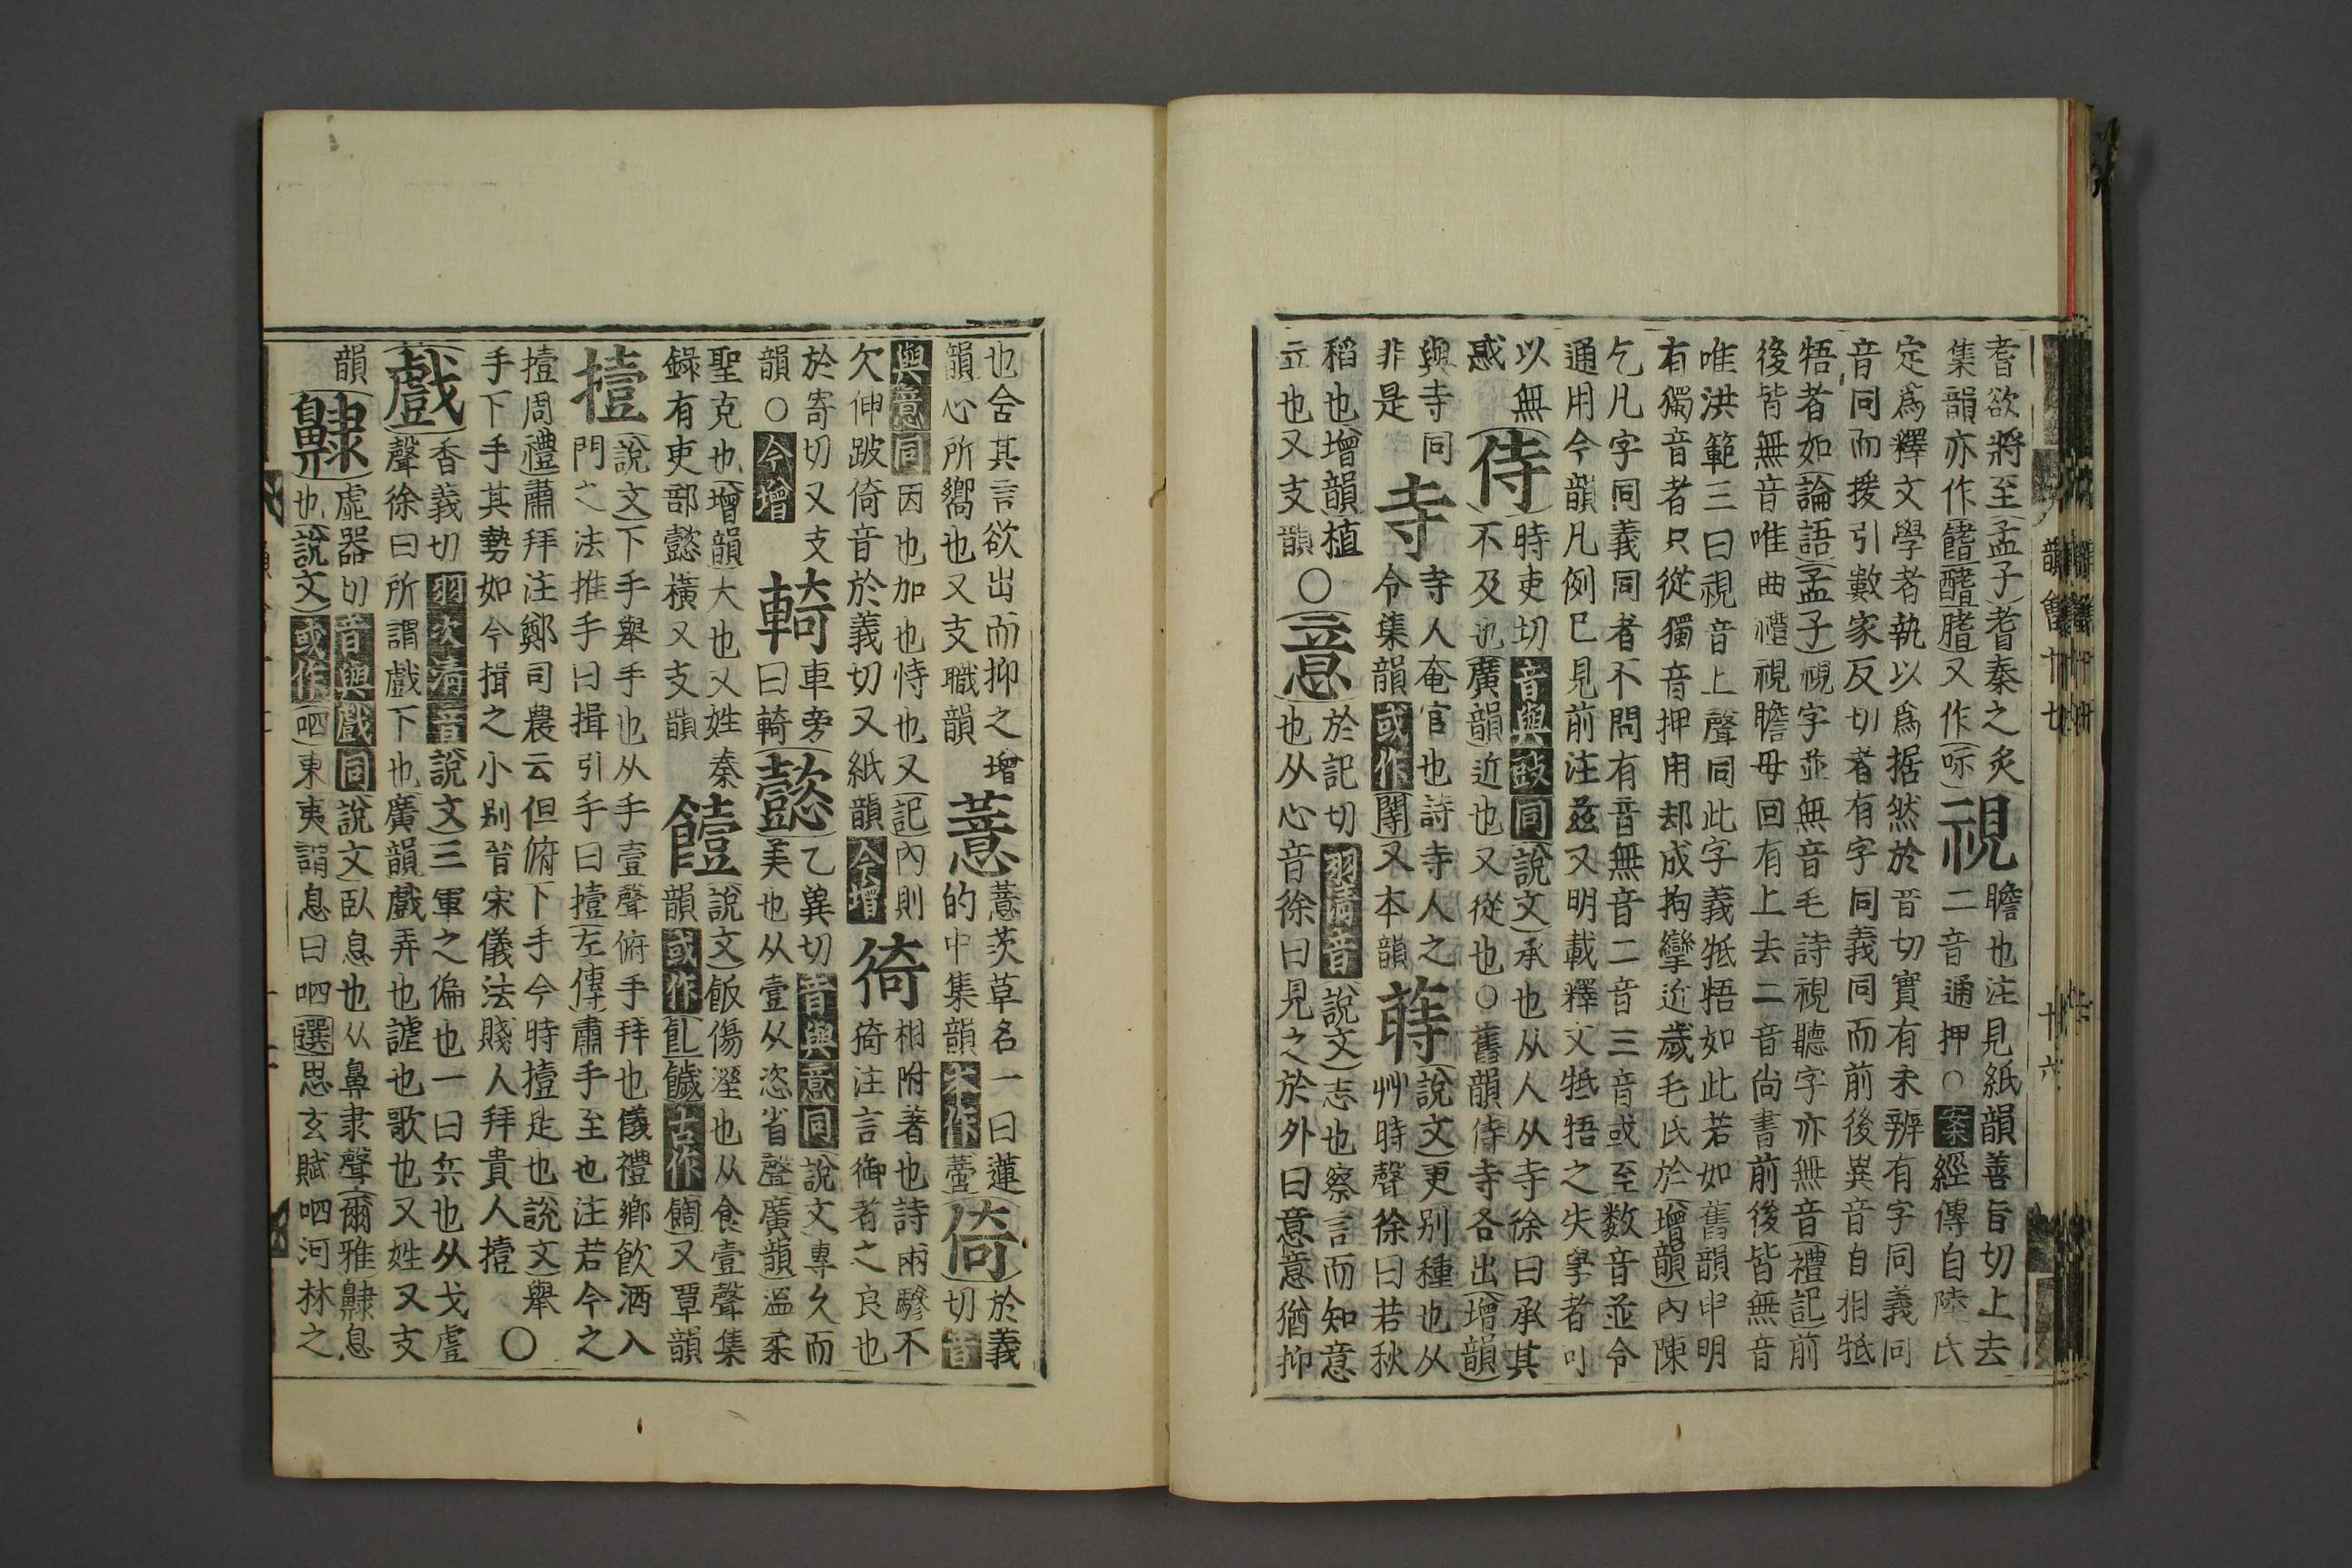 耆欲將至孟子耆秦之炙
集韻亦作饎醏腤又作㖷
視
瞻也注見紙韻善旨切上去
二音通押○案經傳自陸氏
定爲釋文學者執以爲据然於音切實有未辨有字同義同
音同而援引數家反切者有字同義同而前後異音自相牴
牾者如論語孟子視字並無音毛詩視聽字亦無音禮記前
後皆無音唯曲禮視瞻毋回有上去二音尙書前後皆無音
唯洪範三曰視音上聲同此字義牴牾如此若如舊韻申明
有獨音者只從獨音押用却成拘攣近歲毛氏於增韻內陳
乞凡字同義同者不問有音無音二音三音或至数音並令
通用今韻凡例已見前注茲又明載釋文牴牾之失學者可
以無
惑
侍
時吏切音與豉同說文承也从人从寺徐曰承其
不及也廣韻近也又從也○舊韻侍寺各出增韻
與寺同
非是
寺
寺人奄官也詩寺人之
令集韻或作閳又本韻
蒔
說文更别種也从
艸時聲徐曰若秋
稻也增韻植
立也又支韻○
意
於記切羽清音說文志也察言而知意
也从心音徐曰見之於外曰意意猶抑
也舍其言欲出而抑之增
韻心所嚮也又支職韻
薏
薏苡草名一曰蓮
的中集韻本作薏
倚
於義
切音
與意同因也加也恃也又記內則
欠伸跛倚音於義切又紙韻今增
徛
相附著也詩兩驂不
猗注言御者之良也
於寄切又支
韻○今增
輢
車旁
曰輢
懿
乙冀切音與意同說文專久而
美也从壹从恣省聲廣韻溫柔
聖克也增韻大也又姓秦
錄有吏部懿橫又支韻
饐
說文飯傷溼也从食壹聲集
韻或作䬣饖古作餲又覃韻
撎
說文下手舉手也从手壹聲俯手拜也儀禮鄉飲酒入
門之法推手曰揖引手曰撎左傳肅手至也注若今之
撎周禮肅拜注鄭司農云但俯下手今時撎是也說文舉
手下手其勢如今揖之小别晉宋儀法賤人拜貴人撎○
戲
香義切羽次清音說文三軍之偏也一曰兵也从戈䖒
聲徐曰所謂戲下也廣韻戲弄也謔也歌也又姓又支
韻
齂
虛器切音與戲同說文臥息也从鼻隶聲爾雅齂息
也說文或作呬東夷謂息曰呬選思玄賦呬河林之